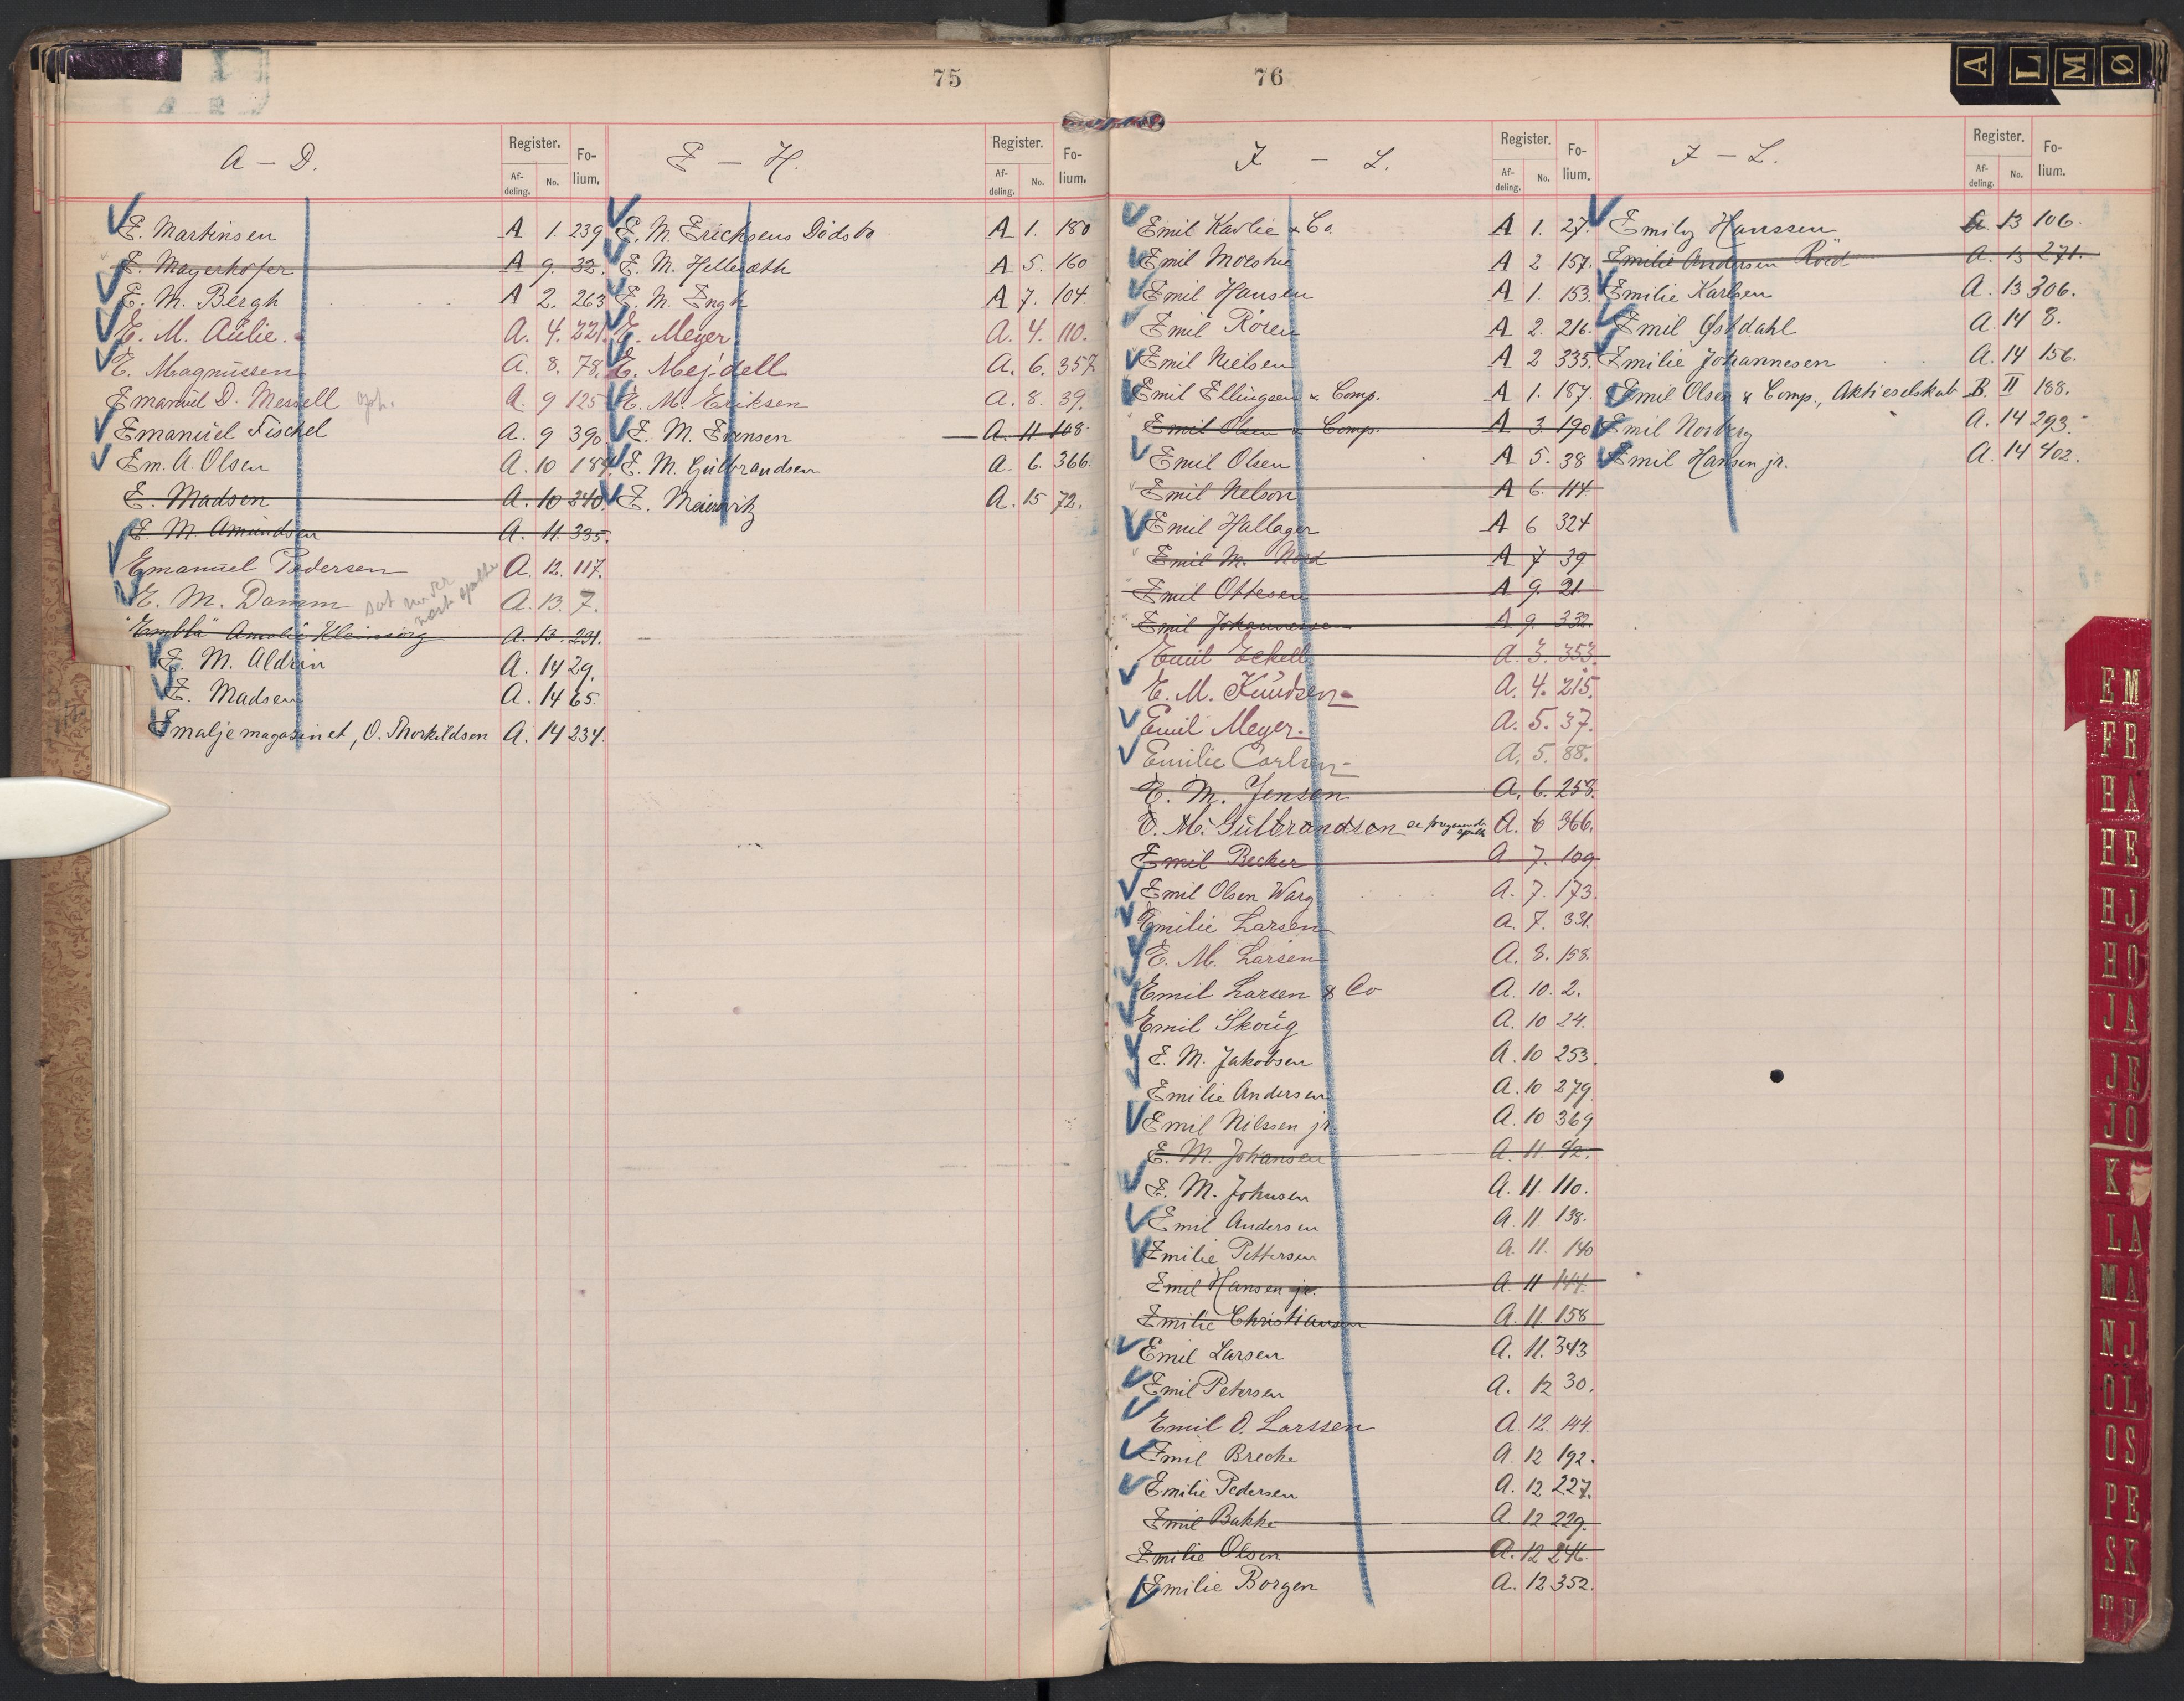 75
A – D.
Register.
Af-deling. No.
Fo-lium.
E. Martinsen A 1. 239
E. Mayerhofer A 9. 32.
E. M. Bergh A 2. 263
E. M. Aulie. A. 4. 221.
E. Magnussen A. 8. 78.
Emanuel D. Messell A. 9 125
Emanuel Fischel A. 9 390
Em. A. Olsen A. 10 184
E. Madsen A. 10 240.
E. M. Amundsen A. 11. 335.
Emanuel Pedersen A. 12. 117.
E. M. Damm A. 13. 7.
"Embla" Amalie Kleinsorg A. 13. 231.
E. M. Aldrin A. 14 29.
E. Madsen A. 14 65.
Emaljemagasinet, O. Thorkildsen A. 14 234.
E – H.
Register.
Af-deling. No.
Fo-lium.
E. M. Erichsens Dødsbo A 1. 180
E. M. Hellesæth A 5. 160
E. M. Engh A 7. 104.
E. Meyer A. 4. 110.
E. Mejdell A. 6. 357.
E. M. Eriksen A. 8. 39.
E. M. Evensen A. 11 108.
E. M. Gulbrandsen A. 6. 366.
E. A. 15 72.
76
I – L.
Register.
Af-deling. No.
Fo-lium.
Emil Kavlie & Co. A 1. 27.
Emil Moestue A 2 157.
Emil Hansen A 1. 153.
Emil Roien A 2. 216.
Emil Nielsen A 2 335.
Emil Ellingsen & Comp. A 1. 187.
Emil Olsen & Comp. A 3. 190
Emil Olsen A 5. 38
Emil Nelson A 6. 114
Emil Hallager A 6 324
Emil M. Nord A 7 39
Emil Ottesen A 9. 21
Emil Johannessen A 9. 332.
Emil Eckell A. 3. 353.
E. M. Knudsen A. 4. 215.
Emil Meyer. A. 5. 37.
Emilie Carlsen A. 5. 88.
E. M. Jensen A. 6. 258.
E. M. Gulbrandsen se foregaaende spalte A. 6 366.
Emil Becker A 7. 109.
Emil Olsen Warg A. 7. 173.
Emilie Larsen A. 7. 331.
E. M. Larsen A. 8. 158.
Emil Larsen & Co A. 10. 2.
Emil Skoug A. 10 24.
E. M. Jakobsen A. 10 253.
Emilie Andersen A. 10 279
Emil Nilssen jr. A. 10 369
E. M. Johansen A. 11. 42.
E. M. Johnsen A. 11. 110.
Emil Andersen A. 11 138.
Emilie Pettersen A. 11. 140
Emil Hansen jr. A. 11 144.
Emilie Christiansen A. 11. 158
Emil Larsen A. 11. 343
Emil Petersen A. 12 30.
Emil O. Larssen A. 12. 144.
Emil Breche A. 12 192.
Emilie Pedersen A. 12 227.
Emil Bakke A 12 229.
Emilie Olsen A. 12 246.
Emilie Borgen A. 12 352.
I – L.
Register.
Af-deling. No.
Fo-lium.
Emily Hanssen A. 13 106.
Emilie Andersen Röed A. 13 271.
Emilie Karlsen A. 13 306.
Emil Østdahl A. 14 8.
Emilie Johannesen A. 14 156.
Emil Olsen & Comp., Aktieselskab B. II 188.
Emil Norberg A. 14 293.
Emil Hansen jr. A. 14 402.
A L M Ø
E M
F R
H A
H E
H J
H O
J A
J E
J O
K
L A
M A
N J
O L
O S
P E
S K
T H